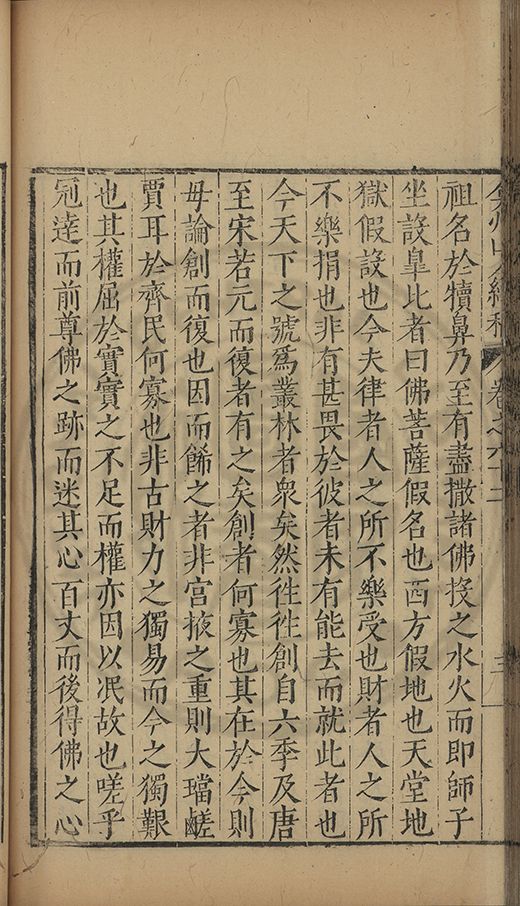 弇州山人續稿 卷之六十二
祖名於犢鼻乃至有盡撒諸佛投之水火而即師子
坐設臯比者曰佛菩薩假名也西方假地也天堂地
獄假設也今夫律者人之所不樂受也財者人之所
不樂捐也非有甚畏於彼者未有能去而就此者也
今天下之號爲叢林者衆矣然徃徃創自六季及唐
至宋若元而復者有之矣創者何寡也其在於今則
毋論創而復也因而餙之者非宫掖之重則大璫鹺
賈耳於齊民何寡也非古財力之獨易而今之獨艱
也其權屈於實實之不足而權亦因以冺故也嗟乎
冠達而前尊佛之跡而迷其心百丈而後得佛之心